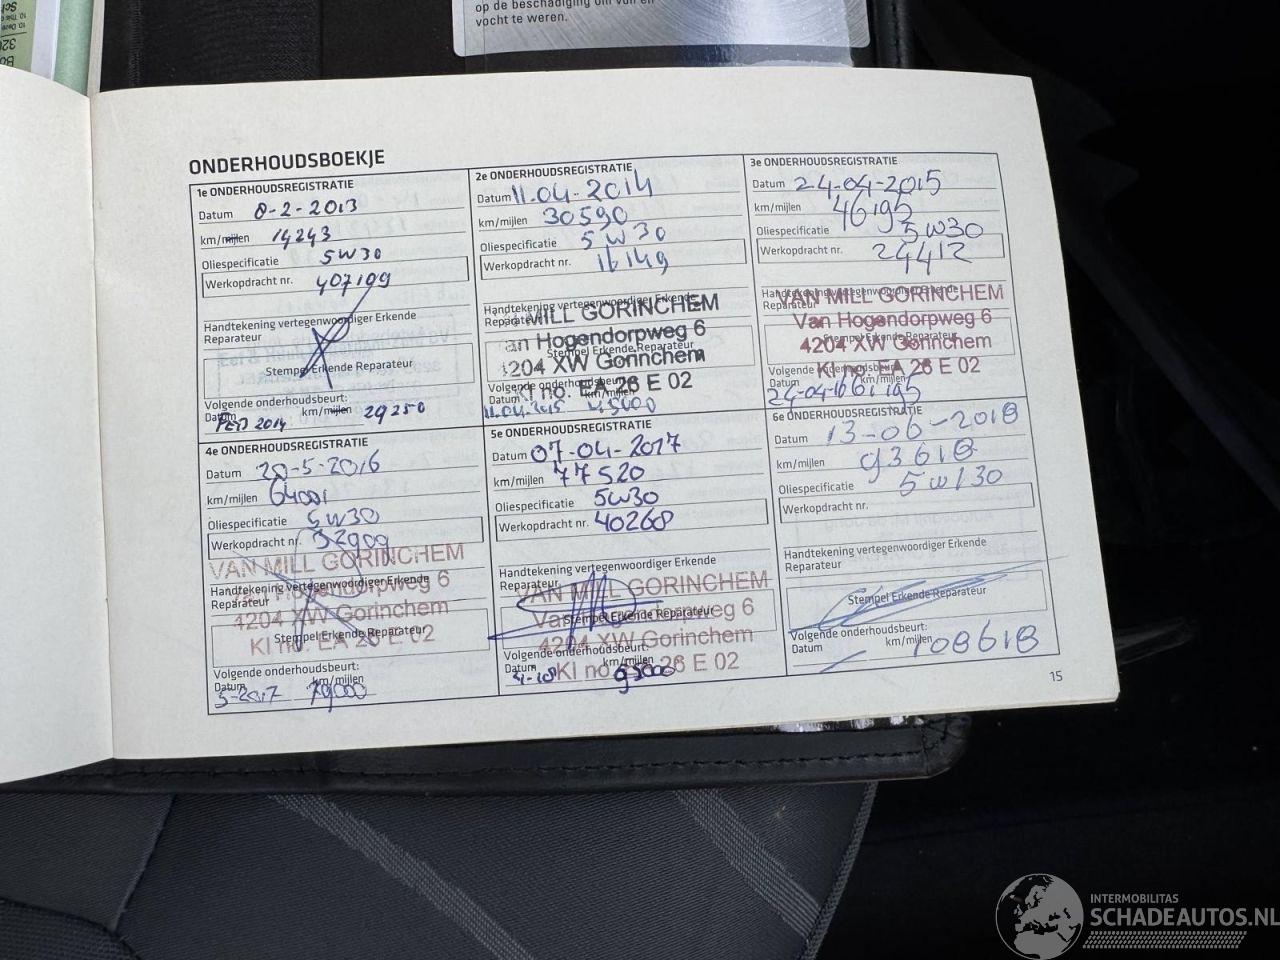 op de beschadiging om vuil en
vocht te weren.
ONDERHOUDSBOEKJE
1e ONDERHOUDSREGISTRATIE
Datum 8-2-2013
km/mijlen 14243
Oliespecificatie 5W30
Werkopdracht nr. 407199
Handtekening vertegenwoordiger Erkende
Reparateur
Stempel Erkende Reparateur
Volgende onderhoudsbeurt:
Datum FEB 2014 km/mijlen 29250
2e ONDERHOUDSREGISTRATIE
Datum 11-04-2014
km/mijlen 30590
Oliespecificatie 5W30
Werkopdracht nr. 16149
Handtekening vertegenwoordiger Erkende
Reparateur
MILL GORINCHEM
an Hogendorpweg 6
Stempel Erkende Reparateur
4204 XW Gorinchem
KI no. EA 26 E 02
Volgende onderhoudsbeurt:
Datum 11-04-2015 km/mijlen 45000
3e ONDERHOUDSREGISTRATIE
Datum 24-04-2015
km/mijlen 46195
Oliespecificatie 5W30
Werkopdracht nr. 24412
Handtekening vertegenwoordiger Erkende
Reparateur
VAN MILL GORINCHEM
Van Hogendorpweg 6
Stempel Erkende Reparateur
4204 XW Gorinchem
KI no. EA 26 E 02
Volgende onderhoudsbeurt:
Datum 24-04-16 km/mijlen 61195
4e ONDERHOUDSREGISTRATIE
Datum 20-5-2016
km/mijlen 64001
Oliespecificatie 5W30
Werkopdracht nr. 32909
VAN MILL GORINCHEM
Handtekening vertegenwoordiger Erkende
Reparateur
Van Hogendorpweg 6
4204 XW Gorinchem
Stempel Erkende Reparateur
KI no. EA 26 E 02
Volgende onderhoudsbeurt:
Datum 5-2017 km/mijlen 79000
5e ONDERHOUDSREGISTRATIE
Datum 07-04-2017
km/mijlen 77520
Oliespecificatie 5W30
Werkopdracht nr. 40268
Handtekening vertegenwoordiger Erkende
Reparateur
VAN MILL GORINCHEM
Van Hogendorpweg 6
Stempel Erkende Reparateur
4204 XW Gorinchem
KI no. EA 26 E 02
Volgende onderhoudsbeurt:
Datum 4-18 km/mijlen 93000
6e ONDERHOUDSREGISTRATIE
Datum 13-06-2018
km/mijlen 93618
Oliespecificatie 5W/30
Werkopdracht nr.
Handtekening vertegenwoordiger Erkende
Reparateur
Stempel Erkende Reparateur
Volgende onderhoudsbeurt:
Datum km/mijlen 108618
15
INTERMOBILITAS
SCHADEAUTOS.NL